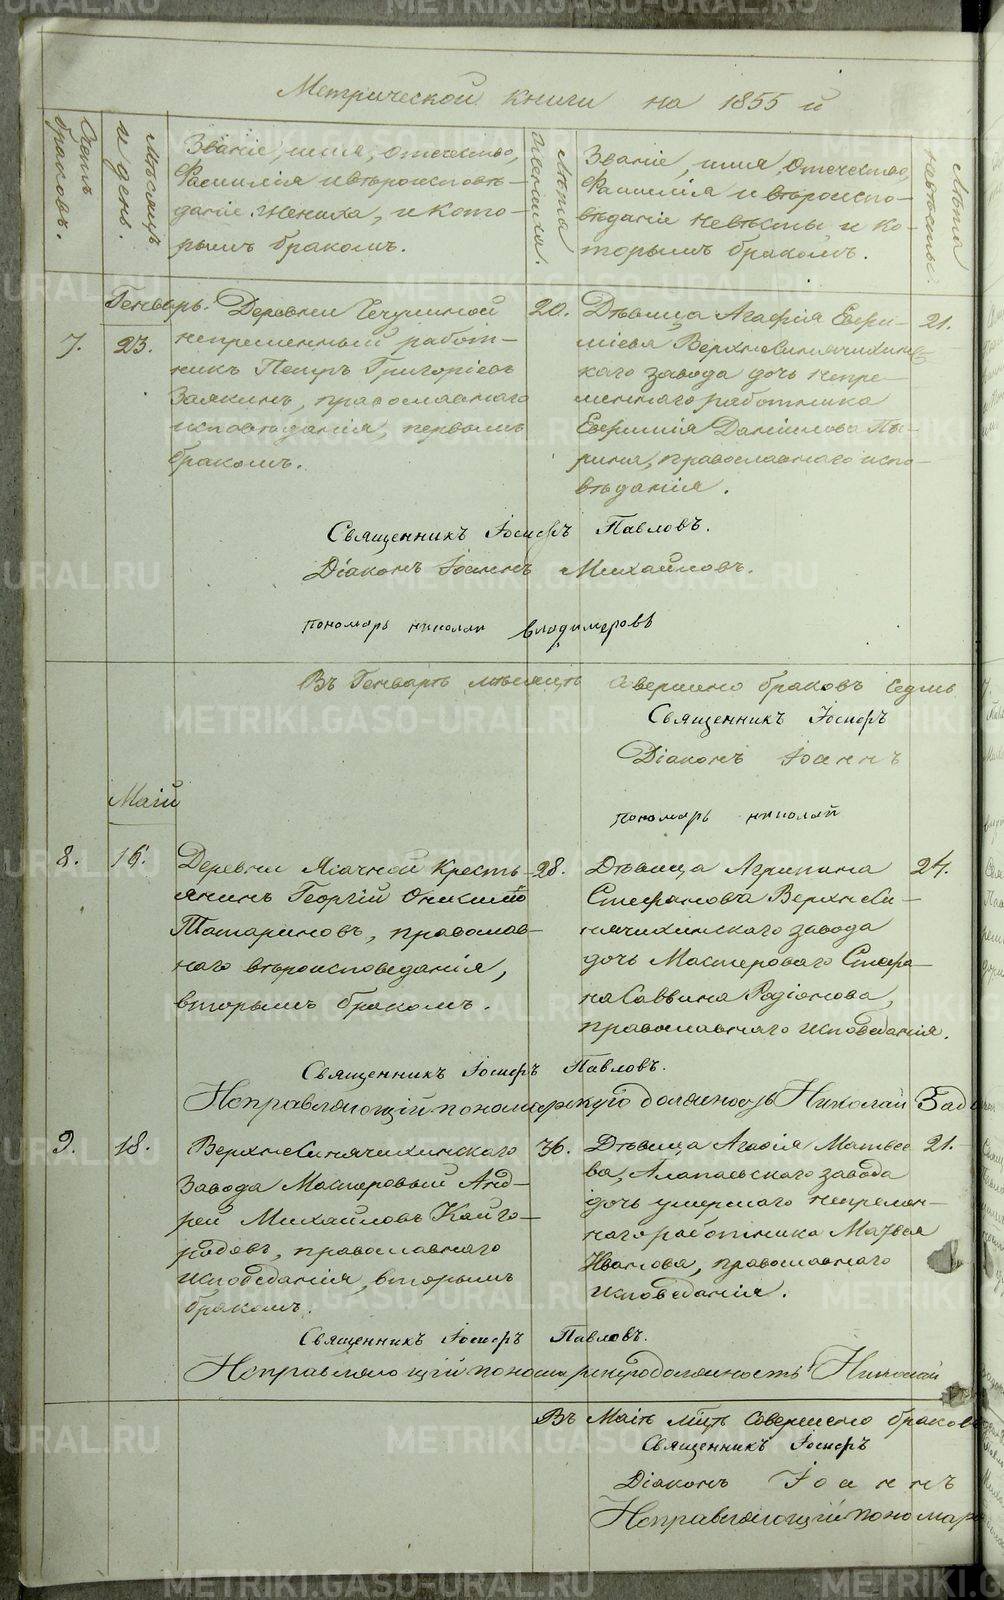 Метрической книги на 1855 й
Счетъ браковъ.
Мѣсяцъ и день.
Званіе, имя, отечество,
Фамилія и вѣроисповѣ-
даніе Жениха, и кото-
рымъ бракомъ.
Лѣта жениха.
Званіе, имя, отечество,
Фамилія и вѣроиспо-
вѣданіе невѣсты, и ко-
торымъ бракомъ.
Лѣта невѣсты.
7.
Генварь.
23.
Деревни Чечулиной
непременный работ-
никъ Петръ Григоріевъ
Заякинъ, православнаго
исповѣданія, первымъ
бракомъ.
20.
Дѣвица Агафія Еври-
міева Верхнесинячихинс-
каго завода дочь непре-
меннаго работника
Евримія Даніилова Пы-
рина, православнаго испо-
вѣданія.
21.
Священникъ Іосифъ Павловъ.
Діаконъ Іоаннъ Михайловъ.
пономарь николай владимеровъ
Въ Генварѣ мѣсяцѣ совершено браковъ седмь
Священникъ Іосифъ
Діаконъ Іоаннъ
пономарь николай
Маій
8.
16.
Деревни Ясачной Кресть-
янинъ Георгій
Татариновъ, православ-
наго вѣроисповеданія,
вторымъ бракомъ.
28.
Дѣвица Агрипина
Стефановна Верхнеси-
нячихинскаго завода
дочь Мастероваго Стефа-
на Саввина Родіонова,
православнаго исповеданія.
24.
Священникъ Іосифъ Павловъ.
Исправляющій пономарскую должность Николай
9.
18.
Верхнесинячихинскаго
Завода Мастеровый Анд-
рей Михайловъ Кайго-
родовъ, православнаго
исповеданія, вторымъ
бракомъ.
36.
Дѣвица Агафія Матвее
ва, Алапаевскаго завода
дочь умершаго непремен-
наго работника Матвея
Иванова, православнаго
исповеданія.
21.
Священникъ Іосифъ Павловъ.
Исправляющій пономарскую должность Николай
Въ Маіѣ мцѣ совершено браковъ
Священникъ Іосифъ
Діаконъ Іоаннъ
Исправляющій пономар
METRIKI.GASO-URAL.RU